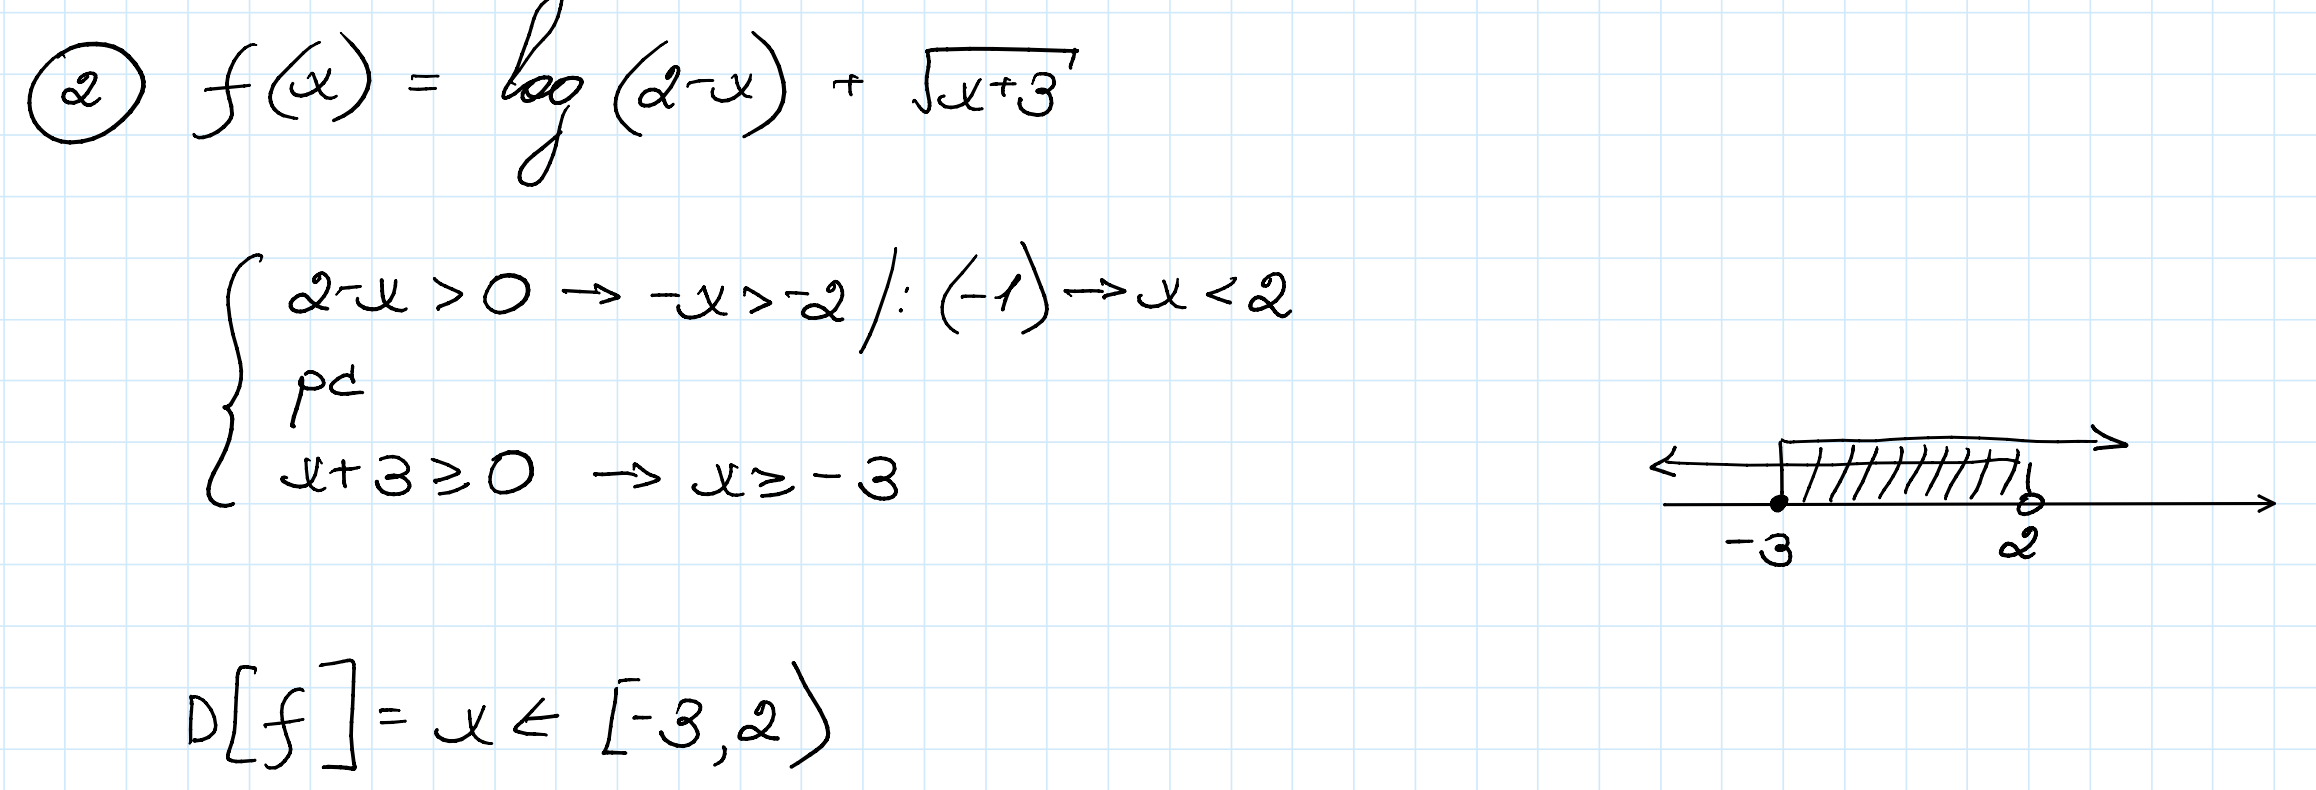 ② f(x) = log (2-x) + √(x+3)
2-x > 0 → -x > -2 /: (-1) → x < 2
pd
x+3 ≥ 0 → x ≥ -3
-3 2
D[f] = x ∈ [-3, 2)